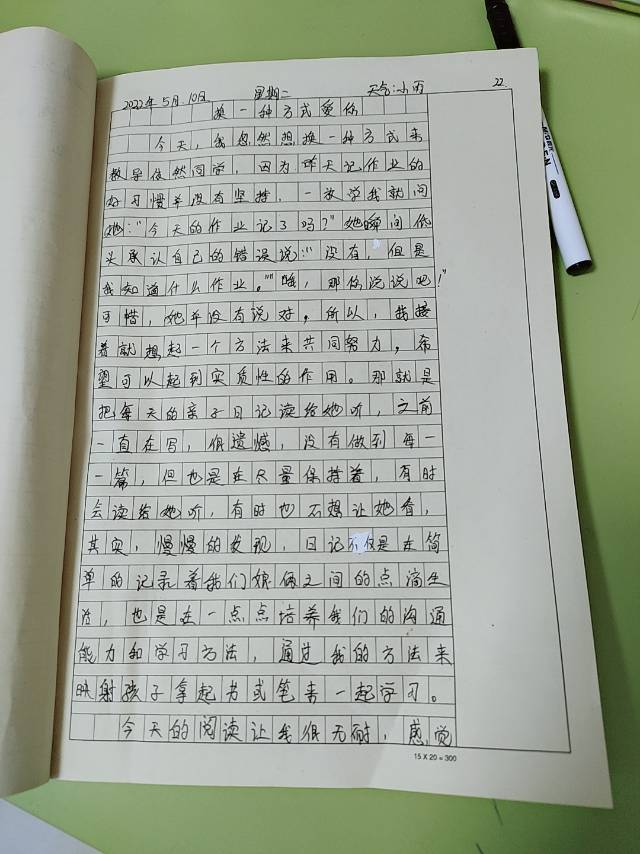 2022年5月10日 星期二 天气:小雨 22.
换一种方式爱你
今天,我忽然想换一种方式来
教导依然同学,因为昨天记作业的
好习惯并没有坚持,一放学我就问
她:"今天的作业记了吗?"她瞬间低
头承认自己的错误说:"没有,但是
我知道什么作业。""哦,那你说说吧!"
可惜,她并没有说好。所以,我接
着就想起一个方法来共同努力,希
望可以起到实质性的作用。那就是
把每天的亲子日记读给她听,之前
一直在写,很遗憾,没有做到每一
一篇,但也是在尽量保持着,有时
会读给她听,有时也不想让她看,
其实,慢慢的发现,日记不仅是在简
单的记录着我们娘俩之间的点滴生
活,也是在一点点培养我们的沟通
能力和学习方法,通过我的方法来
映射孩子拿起书或笔来一起学习。
今天的阅读让我很无耐,感觉
15 X 20 = 300